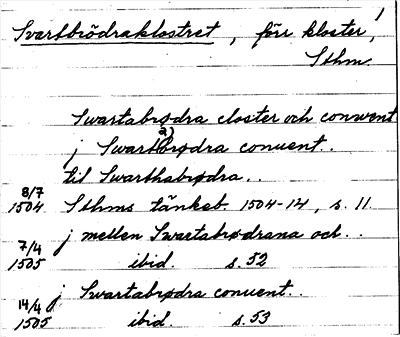 Svartbrödraklostret, förr kloster, 1
Sthm.
Swartabrødra closter och conwent
j Swartbrødra conuent..
a)
til Swarthabrødra..
8/7
1504 Sthms tänkeb. 1504-14, s. 11.
7/4 j mellen Swartabrødrana och..
1505 ibid. s. 52
14/4 j Swartabrødra conuent..
1505 ibid. s. 53